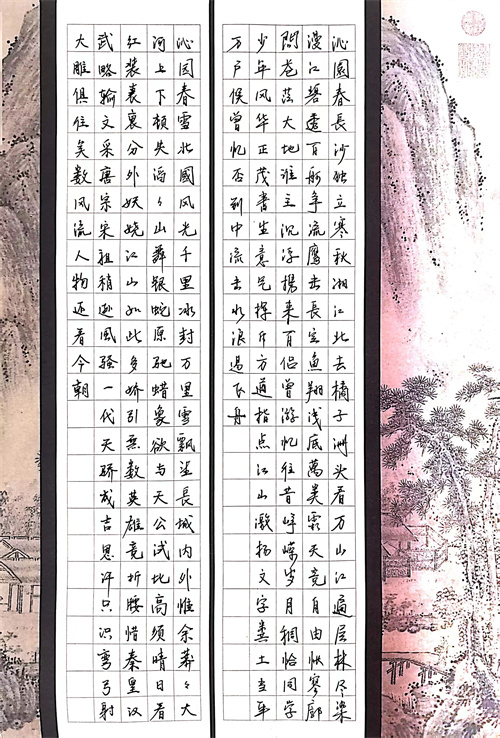 沁園春長沙独立寒秋湘江北去橘子洲头看万山红遍层林尽染
漫江碧透百舸争流鹰击長空魚翔浅底萬类霜天竞自由怅寥廓
問苍茫大地谁主沉浮携来百侣曾游忆往昔峥嵘岁月稠恰同学
少年风华正茂書生意气挥斥方遒指点江山激扬文字粪土当年
万户侯曾忆否到中流击水浪遏飞舟
沁园春雪北國风光千里冰封万里雪飘望長城内外惟余莽々大
河上下顿失滔々山舞银蛇原驰蜡象欲与天公试比高须晴日看
红装素裹分外妖娆江山如此多娇引無数英雄竞折腰惜秦皇汉
武略输文采唐宗宋祖稍逊風骚一代天骄成吉思汗只识弯弓射
大雕俱往矣数风流人物还看今朝